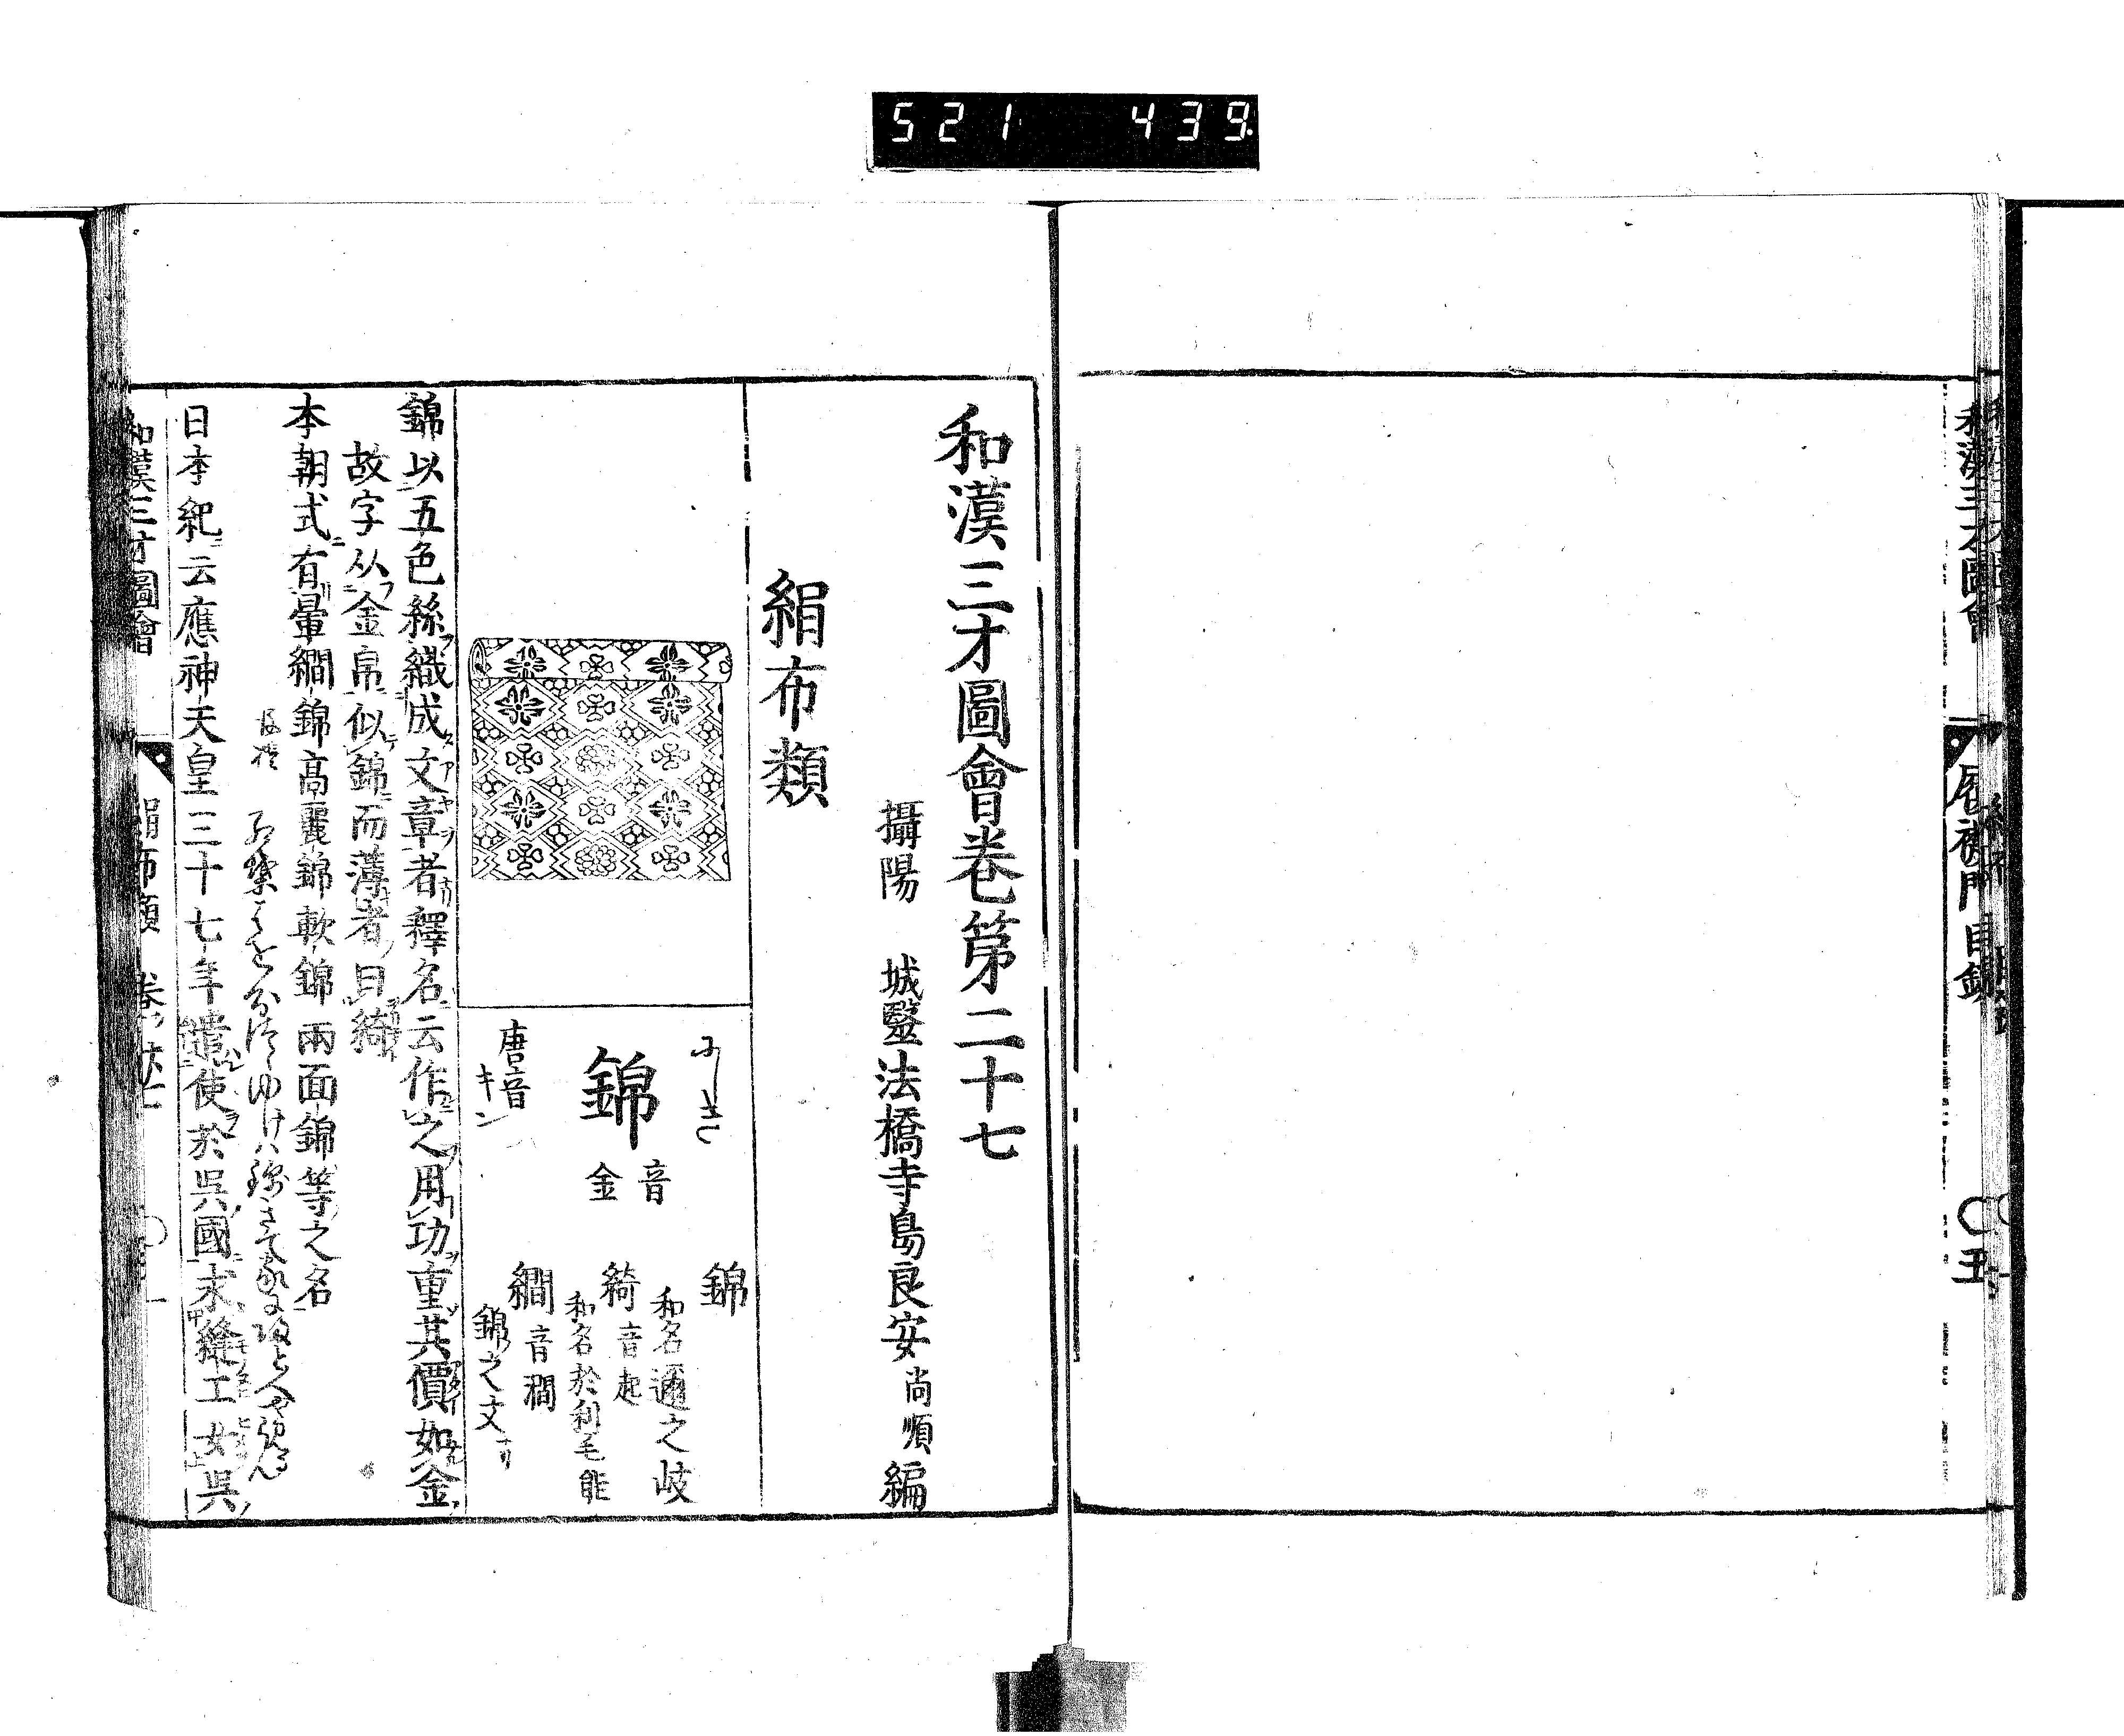 521 439
和漢三才圖會
履襪門目録
〇五
和漢三才圖會卷第二十七
攝陽 城醫法橋寺島良安尚順編
絹布類
にしき
錦
音金
唐音キン
錦
和名邇之岐
綺
音起
和名於利毛能
繝
音澗
錦之文ナリ
錦以五色絲織成文章者釋名云作之用功重其價如金
故字从金帛似錦而薄者曰綺
本朝式有暈繝錦高麗錦軟錦兩面錦等之名
日本紀云應神天皇三十七年遣使於呉國求縫工女呉
和漢三才圖會
絹布類